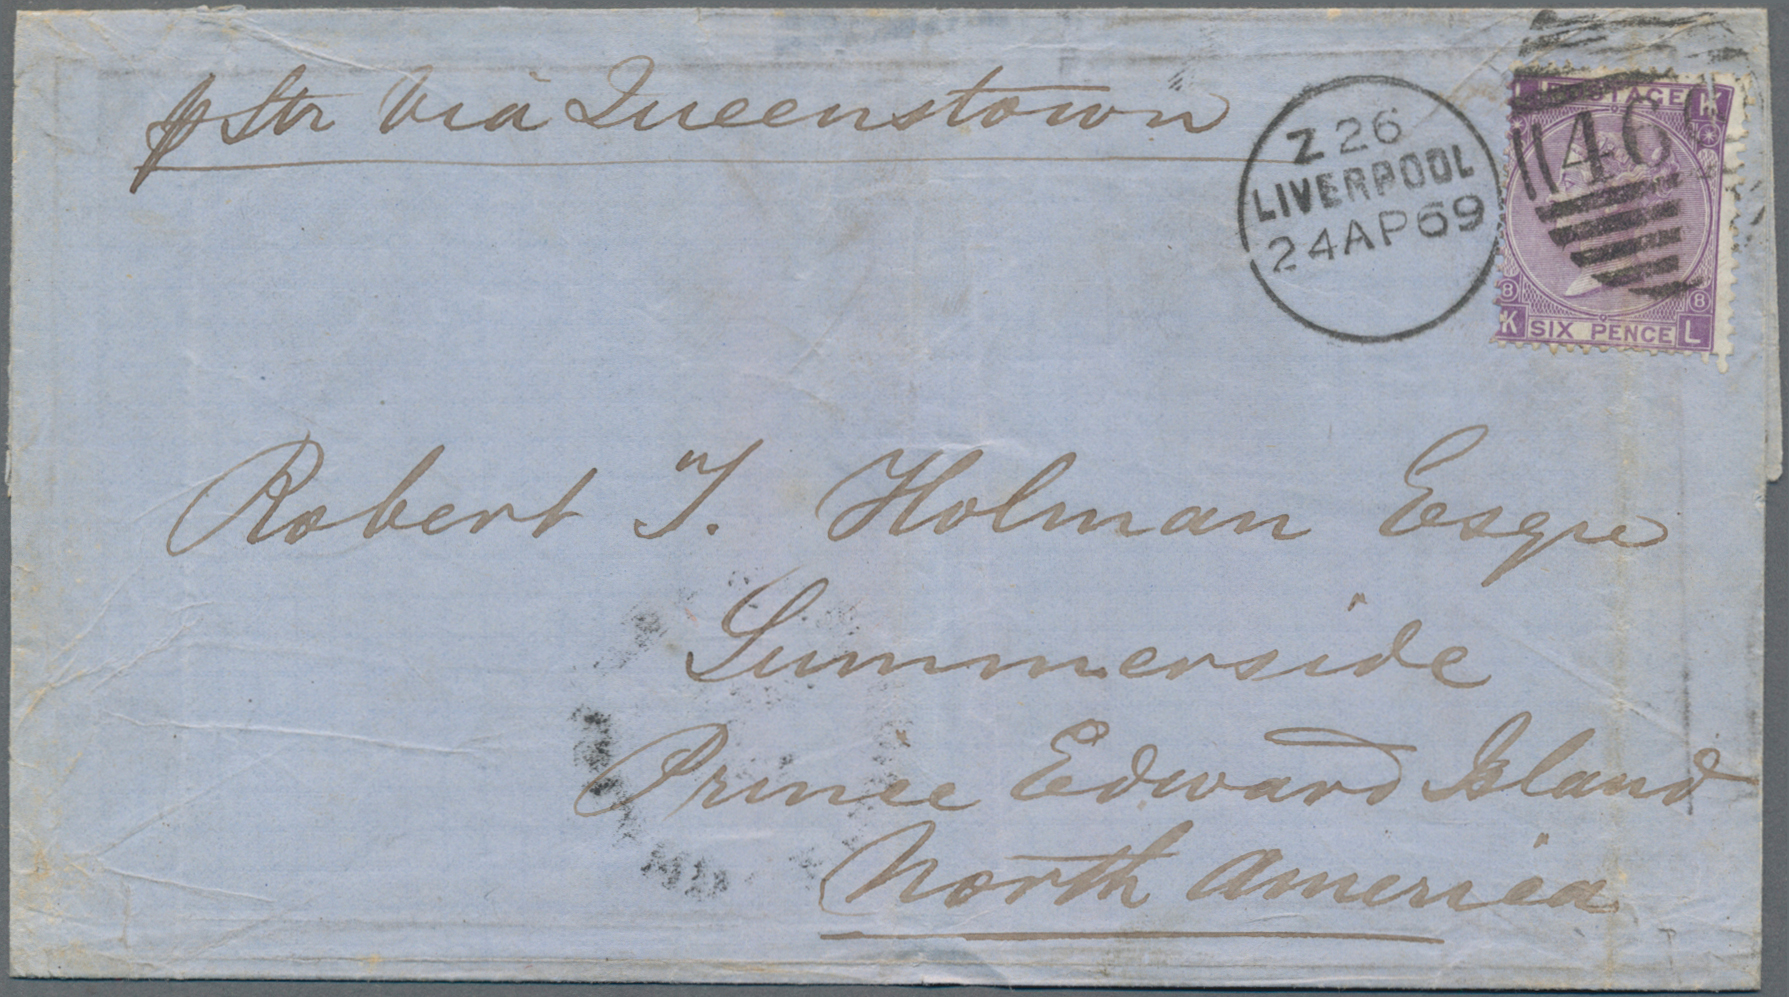 p Str Via Queenstown
Z 26
LIVERPOOL
24AP69
466
L POSTAGE K
8 8
K SIX PENCE L
Robert T. Holman Esqre
Summerside
Prince Edward Island
North America